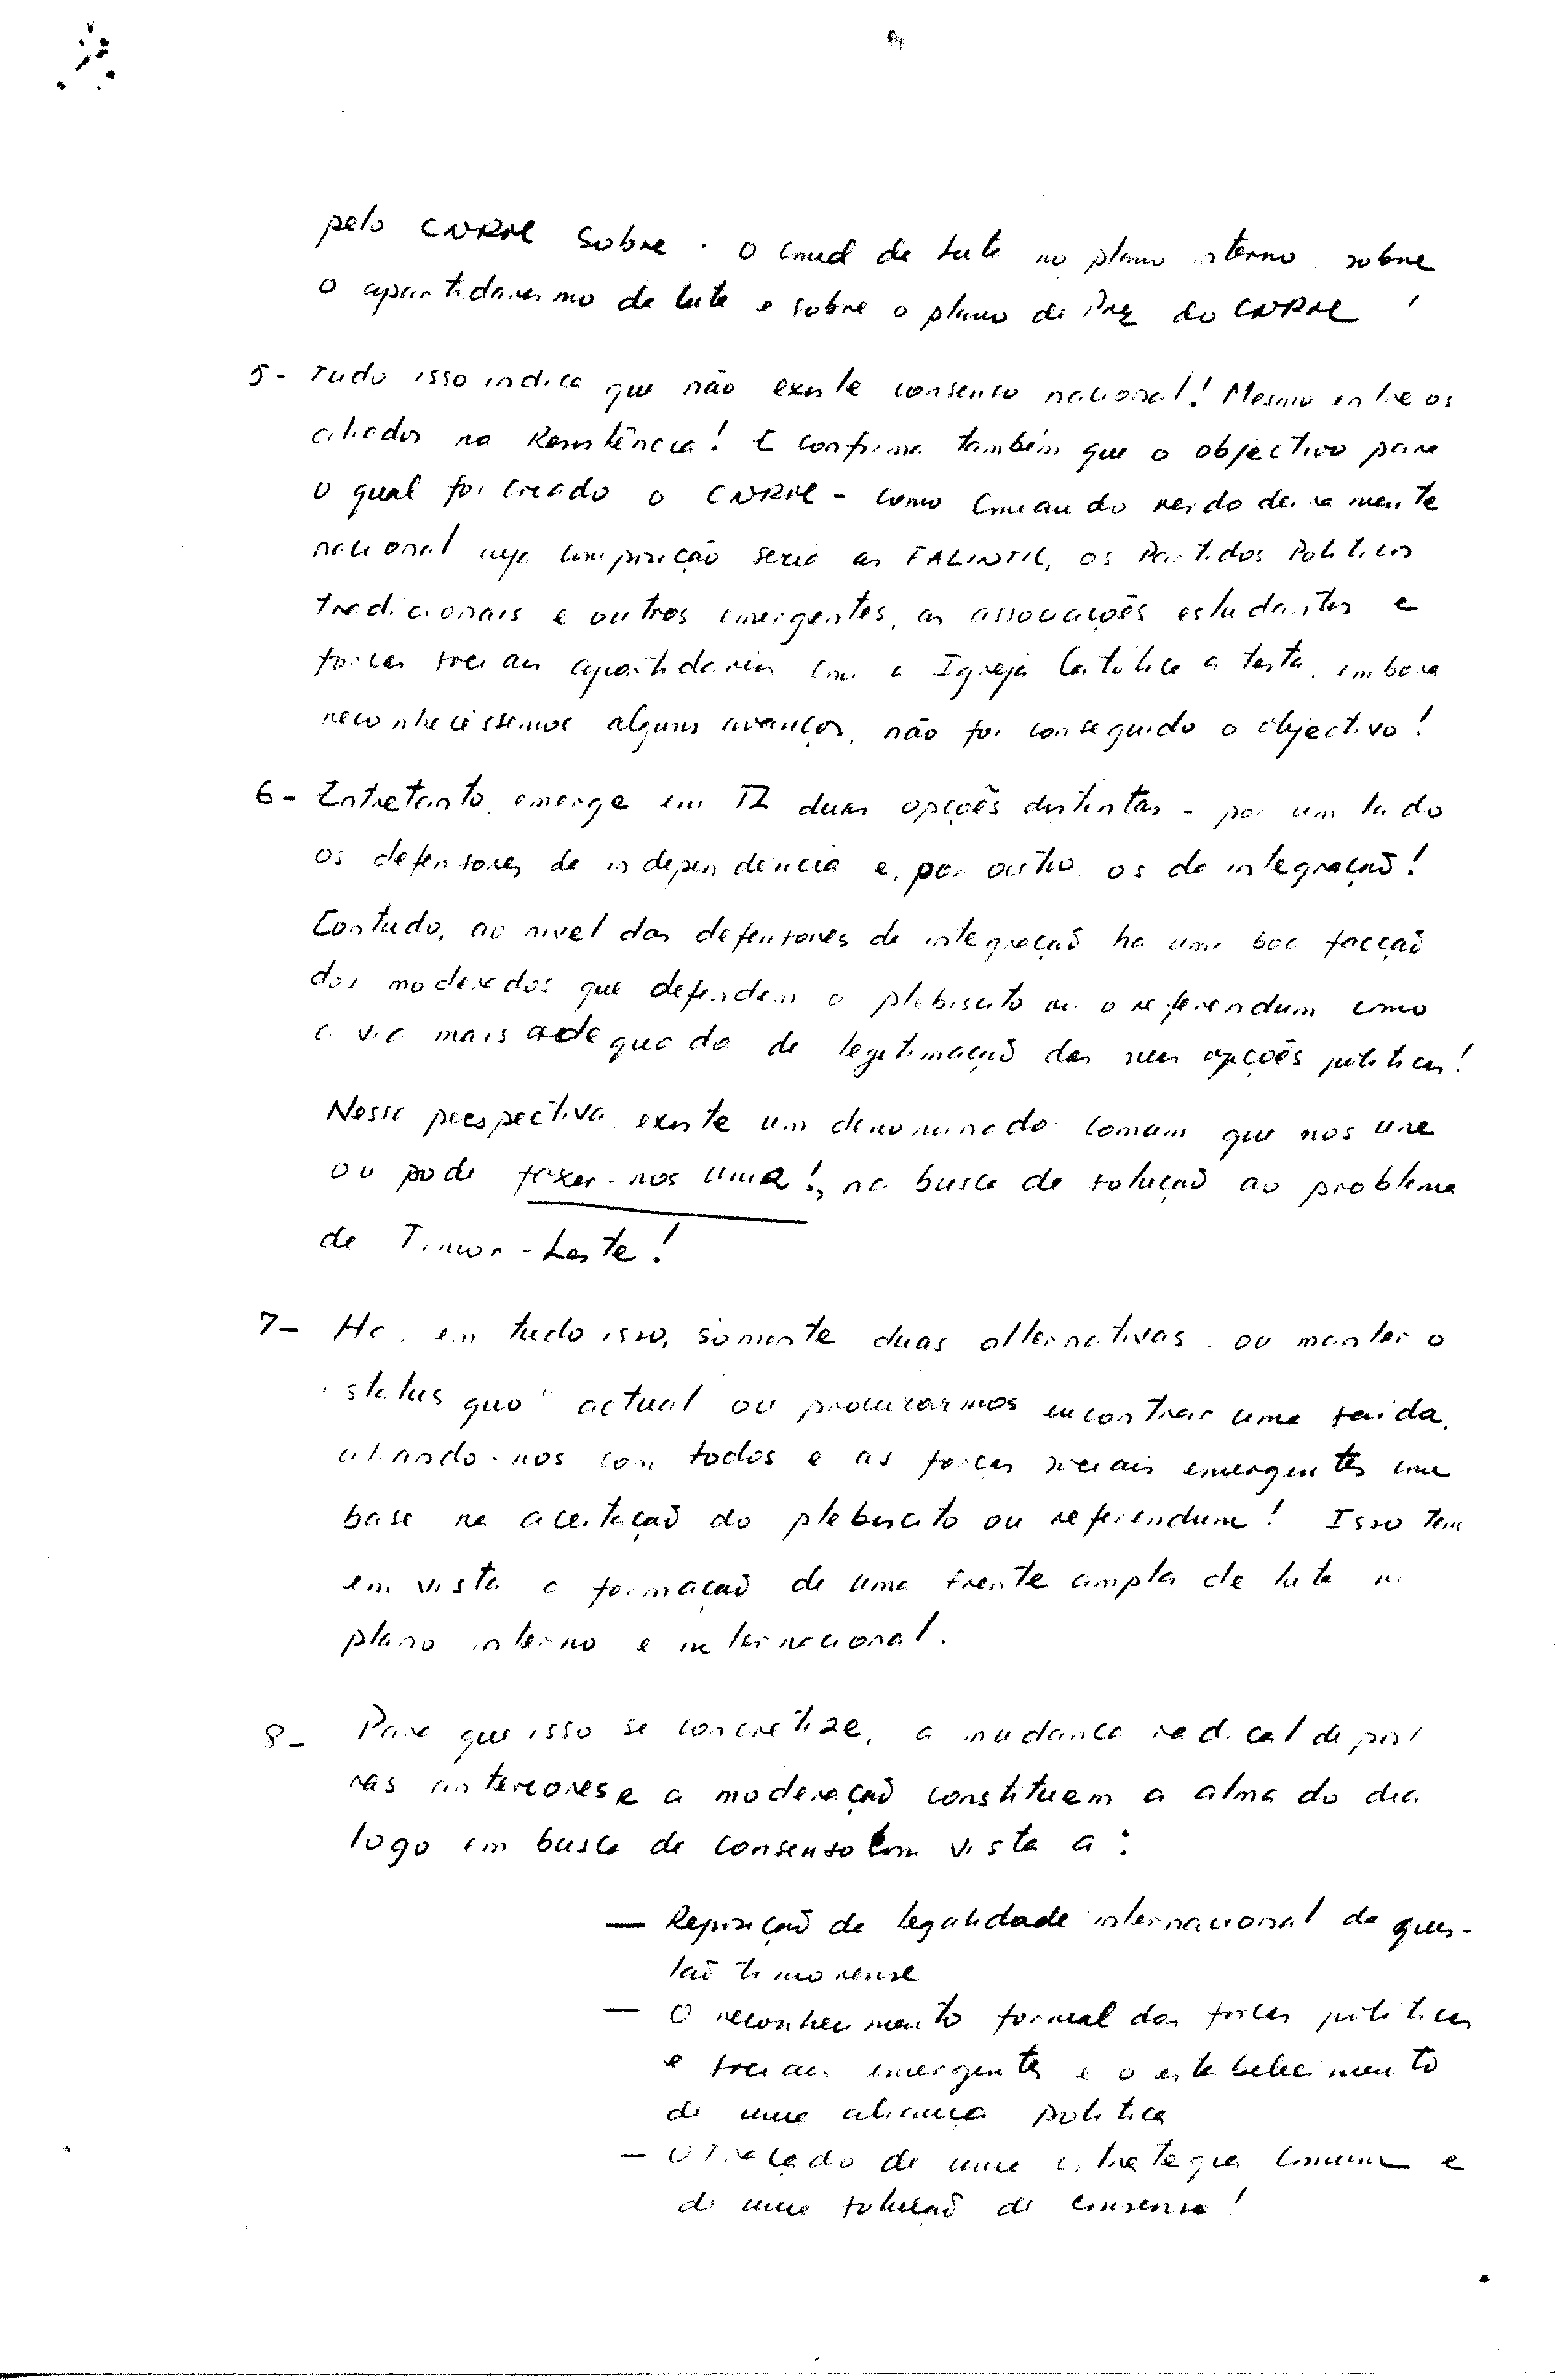 pelo CNRM sobre o cmd da luta no plano interno, sobre
o apartidarismo da luta e sobre o plano de Paz do CNRM!
5- Tudo isso indica que não existe consenso nacional! Mesmo entre os
aliados na Resistência! E confirma também que o objectivo para
o qual foi creado o CNRM - como Comando verdadeiramente
nacional cuja composição seria as FALINTIL, os Partidos Politicos
tradicionais e outros emergentes, as associações estudantes e
forças sociais apartidarias com a Igreja Católica a testa, embora
reconhecêssemos alguns avanços, não foi conseguido o objectivo!
6- Entretanto, emerge em TL duas opções distintas - por um lado
os defensores da independencia e, por outro, os da integração!
Contudo, ao nivel dos defensores da integração ha uma boa facção
dos moderados que defendem o plebiscito ou o referendum como
a via mais adequada de legitimação das suas opções politicas!
Nessa perspectiva existe um denominador comum que nos une
ou pode fazer-nos unir!, na busca de solução ao problema
de Timor-Leste!
7- Ha, em tudo isso, somente duas alternativas: ou manter o
"status quo" actual ou procurarmos encontrar uma saida,
aliando-nos com todos e as forças sociais emergentes com
base na aceitação do plebiscito ou referendum! Isso tem
em vista a formação de uma frente ampla de luta no
plano interno e internacional.
8- Para que isso se concretize, a mudança radical de postu
ras anteriores e a moderação constituem a alma do dia
logo em busca de consenso com vista a:
— Reposição da legalidade internacional da ques-
tão timorense
— O reconhecimento formal das forças politicas
e sociais emergentes e o estabelecimento
de uma aliança politica
— O traçado de uma estrategia comum e
de uma solução de consenso!